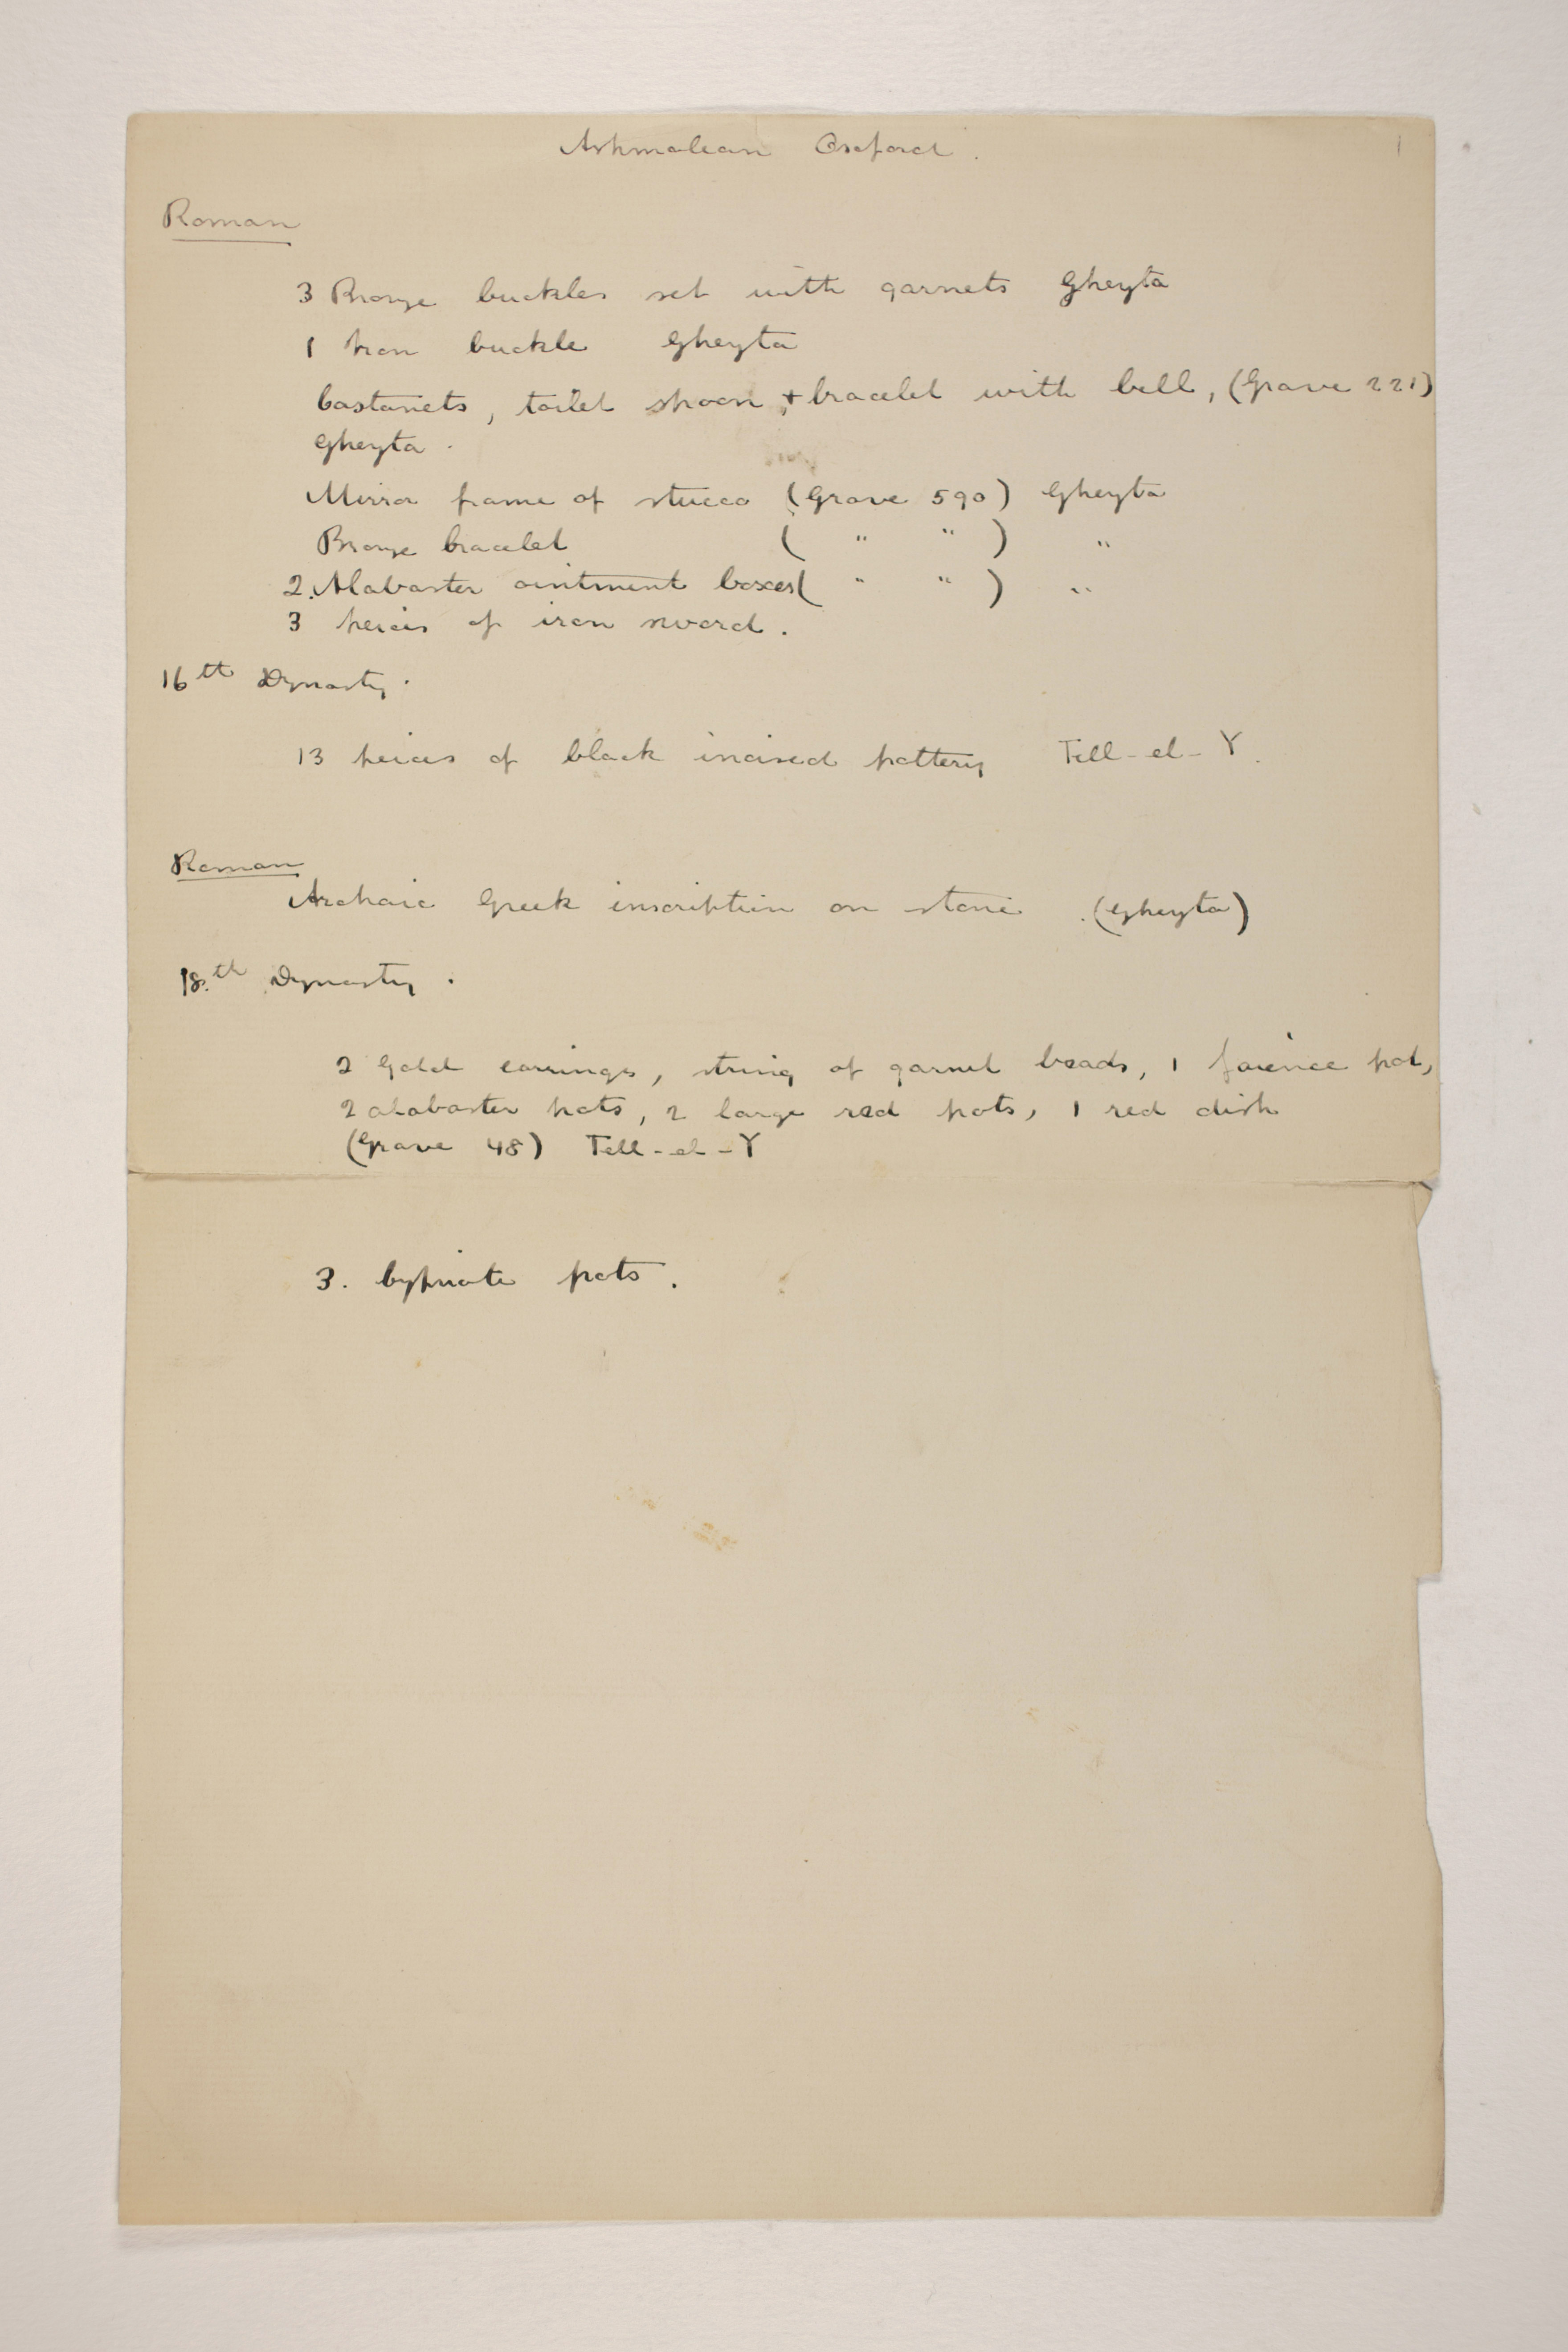 Ashmolean Oxford.
1
Roman
3 Bronze buckles set with garnets Gheyta
1 Iron buckle Gheyta
Castanets, toilet spoon, + bracelet with bell, (Grave 221)
Gheyta.
Mirror frame of stucco (Grave 590) Gheyta
Bronze bracelet ( " " ) "
2. Alabaster ointment boxes ( " " ) "
3 peices of iron sword.
16th Dynasty.
13 peices of black incised pottery Tell-el-Y.
Roman
Archaic Greek inscription on stone. (Gheyta)
18.th Dynasty.
2 Gold earrings, string of garnet beads, 1 faience pot,
2 alabaster pots, 2 large red pots, 1 red dish
(Grave 48) Tell-el-Y
3. Cypriote pots.